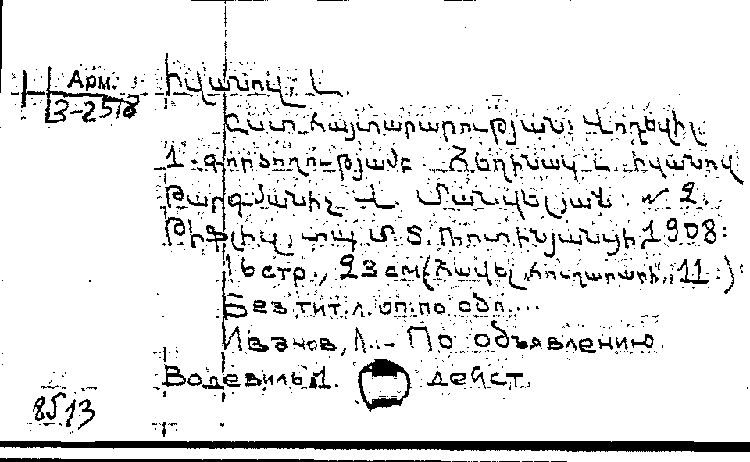 Арм.
3-2518
Իվանով, Լ.
Ըստ հայտարարության: Վոդևիլ
1 գործողությամբ: Հեղինակ Լ. Իվանով
Թարգմանիչ Վ. Մանվելյան № 2.
Թիֆլիս, տպ. Մ. Տ. Ռոտինյանցի, 1908:
16 стр., 23 см (Հավել. 11.):
Без тит. л. оп. по обл...
Иванов, Л. - По объявлению
Водевиль 1. дейст.
8513